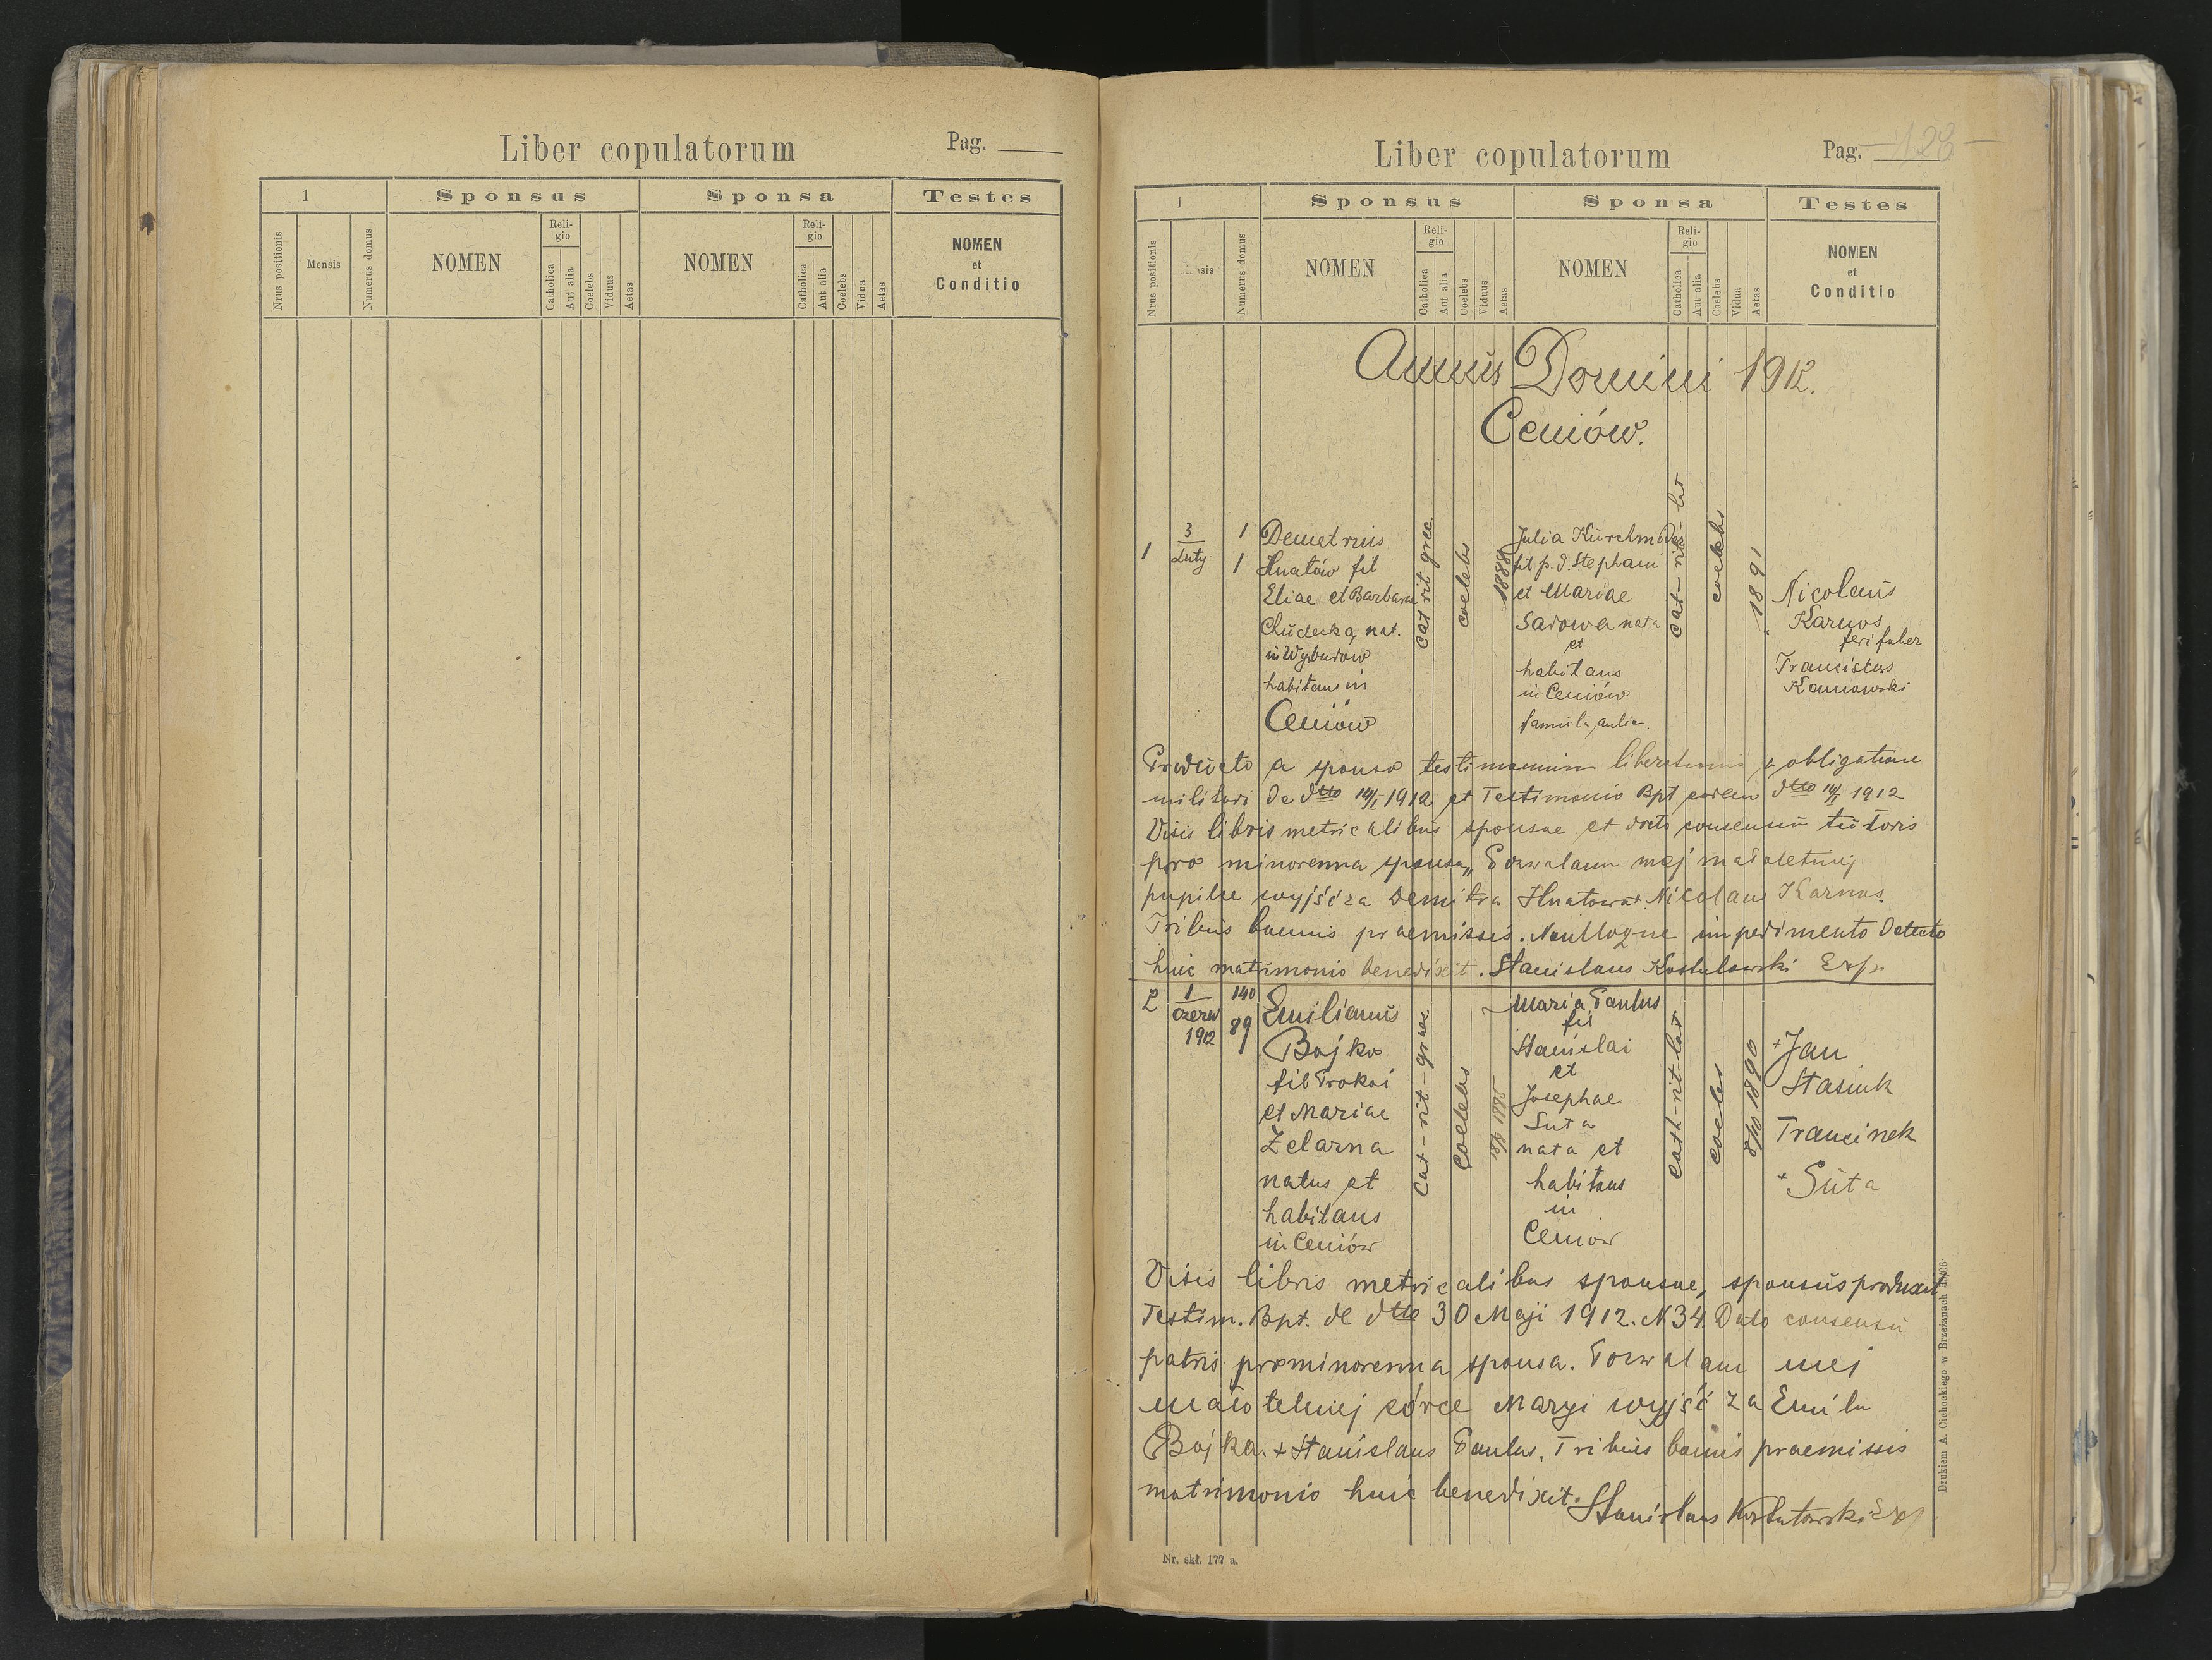 Liber copulatorum
Pag.
1
Sponsus
Sponsa
Testes
Nrus positionis
Mensis
Numerus domus
NOMEN
Religio
Catholica
Aut alia
Coelebs
Viduus
Aetas
NOMEN
Religio
Catholica
Aut alia
Coelebs
Vidua
Aetas
NOMEN
et
Conditio
Liber copulatorum
Pag. -128-
1
Sponsus
Sponsa
Testes
Nrus positionis
Mensis
Numerus domus
NOMEN
Religio
Catholica
Aut alia
Coelebs
Viduus
Aetas
NOMEN
Religio
Catholica
Aut alia
Coelebs
Vidua
Aetas
NOMEN
et
Conditio
Annus Domini 1912.
Ceniów.
1
3
Luty
1
1
Demetrius
Hnatów fil
Eliae et Barbarae
Chudecka nat.
in Wybudów
habitans in
Ceniów
cat rit grec.
coelebs
1888
Julia
fil p. d. Stephani
et Mariae
Sadowa nata
et
habitans
in Ceniów
famula
cat-rit-lat
coelebs
1891
Nicolaus
Karnos
feri faber
Franciscus
Producto a sponso testimonium a obligatione
militari de dtto 14/I 1912 et Testimonio Bpt dtto 14/I 1912
Visis libris metricalibus sponsae et dato consensu tutoris
pro minorenna sponsa „Pozwalam mej małoletniej
pupilce wyjść za Demitra Hnatowa + Nicolaus Karnas.
Tribus bannis praemissis. Nulloque impedimento detecto
huic matrimonio benedixit. Stanislaus Exp.
2
1
Czerw
1912
140
89
Emilianus
Bojko
fil Prokoi
et Mariae
Żelarna
natus et
habitans
in Ceniów
Cat-rit-graec
Coelebs
Maria Paulus
fil
Stanislai
et
Josephae
Suta
nata et
habitans
in
Ceniow
cath-rit-lat
coelebs
1890
+Jan
Stasiuk
Francinek
+Suta
Visis libris metricalibus sponsae, sponsus produxit
Testim. Bpt. de dtto 30 Maji 1912. N 34. Dato consensu
patris pro minorenna sponsa. Pozwalam mej
małoletniej córce Maryi wyjść za Emila
Bojka. + Stanislaus Paulus. Tribus bannis praemissis
matrimonio huic benedixit. Stanislaus
Drukiem A. Cichockiego w Brzeżanach
Nr. skł. 177 a.